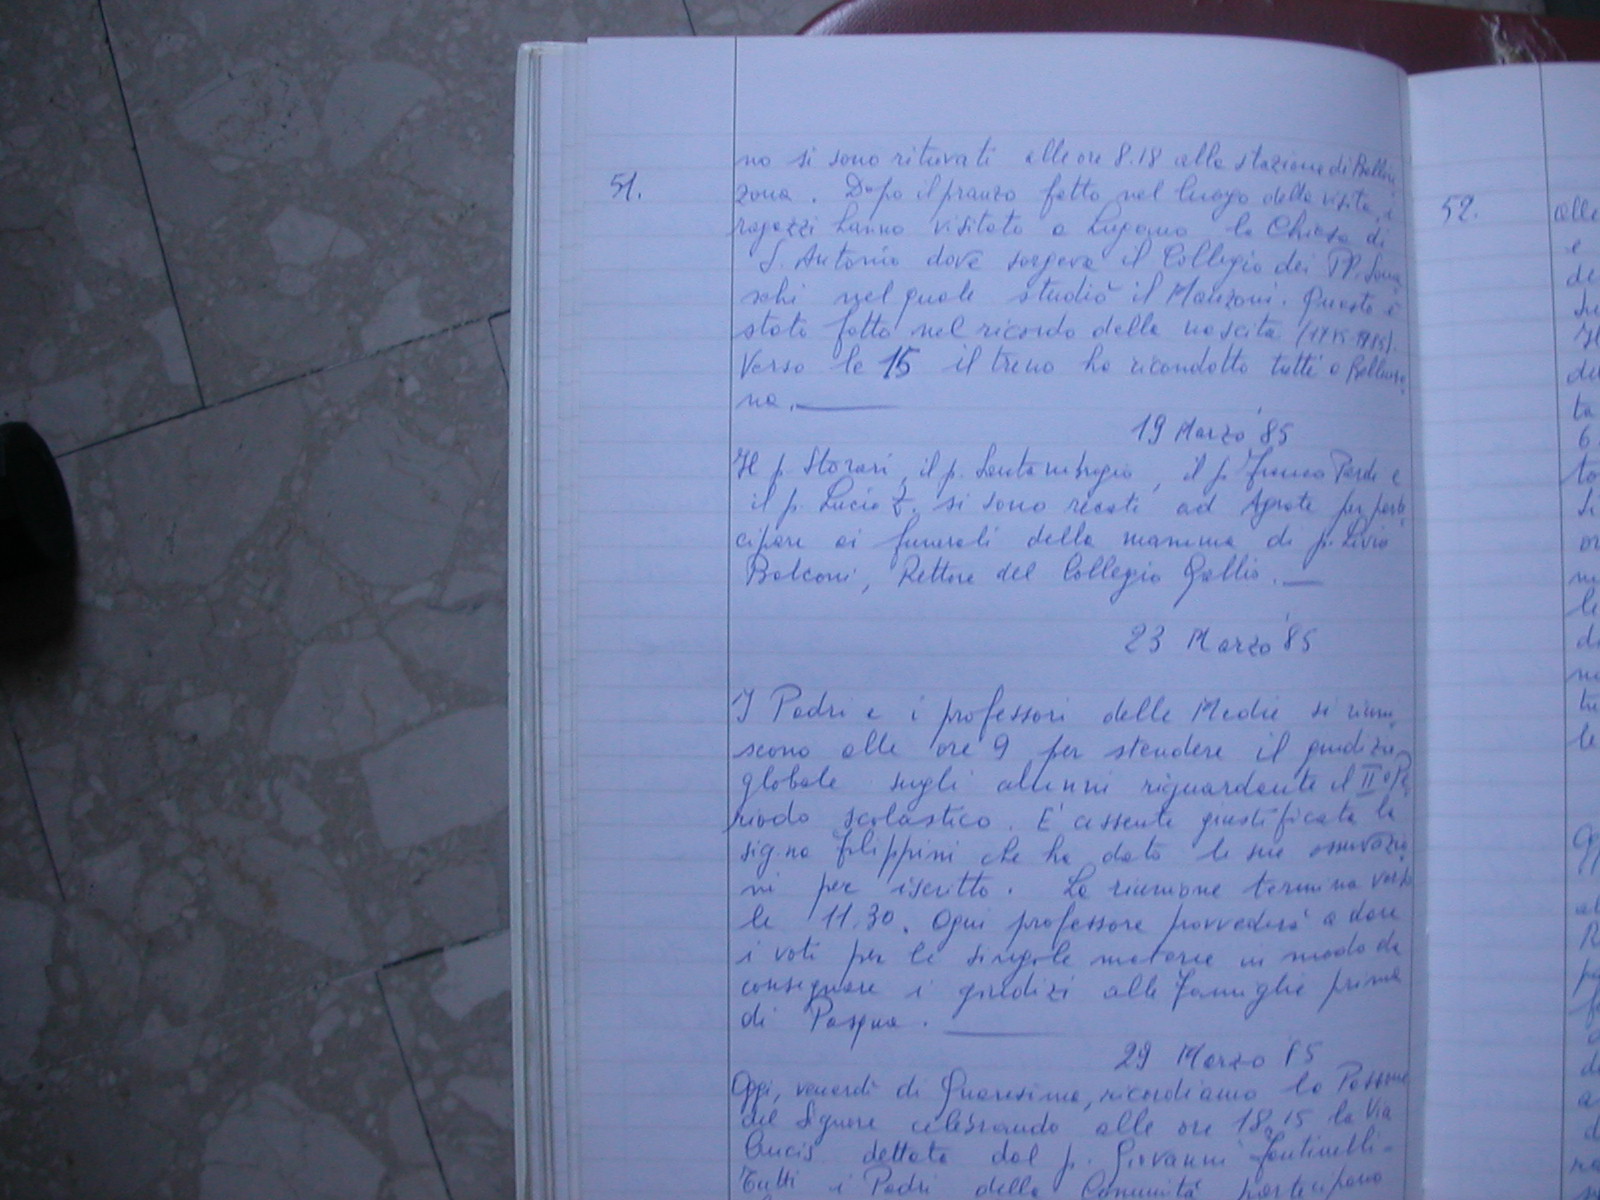 no si sono ritrovati alle ore 8.18 alla stazione di Bellin
51.
zona. Dopo il pranzo fatto nel luogo della visita, i
ragazzi hanno visitato a Lugano la Chiesa di
S. Antonio dove sorgeva il Collegio dei PP. Soma
schi nel quale studiò il Manzoni. Questo è
stato fatto nel ricordo della nascita
Verso le 15 il treno ha ricondotto tutti a Bellinzo
na.
19 Marzo '85
Il p. Storari, il p. Santambrogio, il p. Franco e
il p. Lucio Z. si sono recati ad Agrate per parte
cipare ai funerali della mamma di p. Livio
Balconi, Rettore del Collegio Gallio.
23 Marzo '85
I Padri e i professori delle Medie si riuni
scono alle ore 9 per stendere il giudizio
globale sugli alunni riguardante il II° Pe
riodo scolastico. E' assente giustificata la
sig.na Filippini che ha dato le sue osservazio
ni per iscritto. La riunione termina verso
le 11,30. Ogni professore provvederà a dare
i voti per le singole materie in modo da
consegnare i giudizi alle famiglie prima
di Pasqua.
29 Marzo 85
Oggi, venerdì di Quaresima, ricordiamo la Passione
del Signore celebrando alle ore 18,15 la Via
Crucis dettata dal p. Giovanni
Tutti i Padri della Comunità partecipano
52.
alle
e